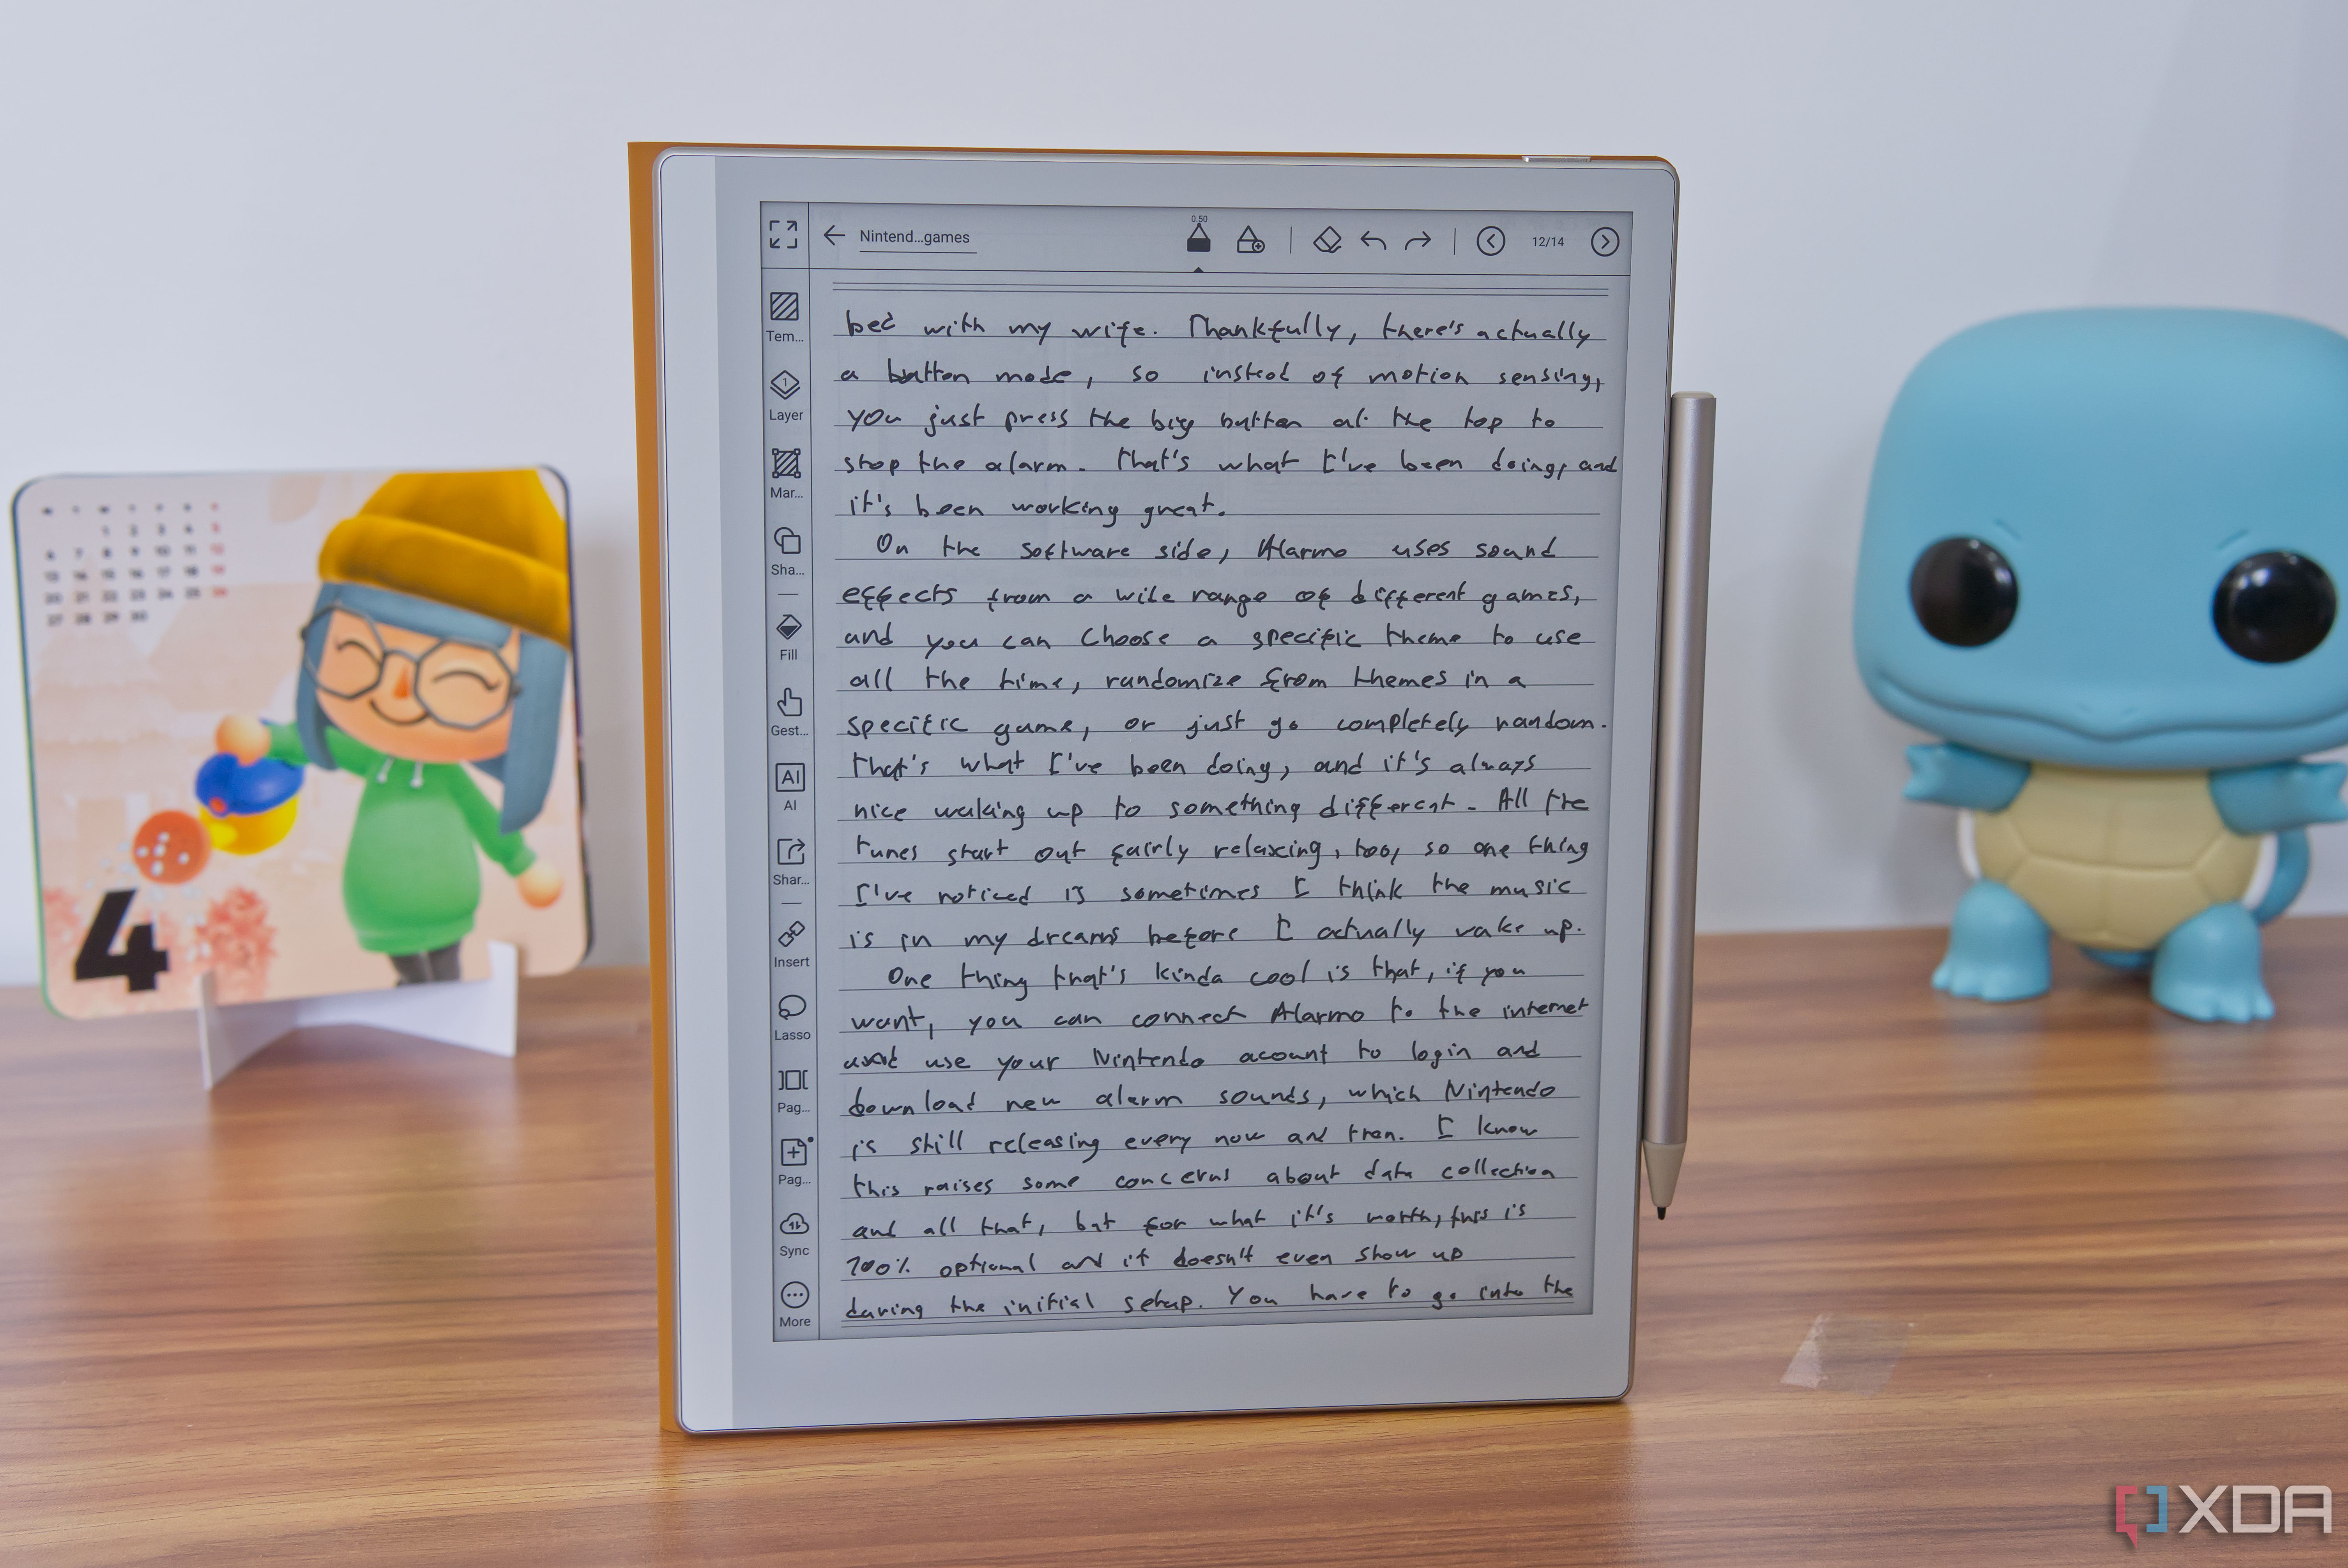 0.50
Nintend...games
12/14
Tem...
Layer
1
Mar...
Sha...
Fill
Gest...
AI
AI
Shar...
Insert
Lasso
Pag...
Pag...
Sync
More
bed with my wife. Thankfully, there's actually
a button mode, so instead of motion sensing,
you just press the big button at the top to
stop the alarm. That's what I've been doing, and
it's been working great.
On the software side, Alarmo uses sound
effects from a wide range of different games,
and you can choose a specific theme to use
all the time, randomize from themes in a
specific game, or just go completely random.
That's what I've been doing, and it's always
nice waking up to something different. All the
tunes start out fairly relaxing, too, so one thing
I've noticed is sometimes I think the music
is in my dreams before I actually wake up.
One thing that's kinda cool is that, if you
want, you can connect Alarmo to the internet
and use your Nintendo acount to login and
download new alarm sounds, which Nintendo
is still releasing every now and then. I know
this raises some concerns about data collection
and all that, but for what it's worth, this is
100% optional and it doesn't even show up
during the initial setup. You have to go into the
4
XDA